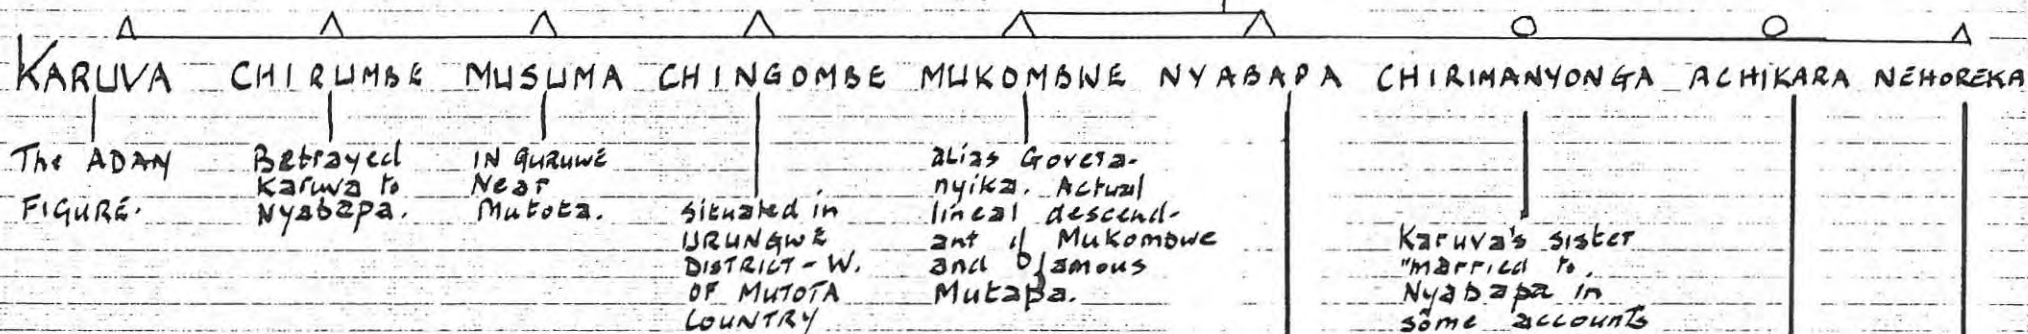 KARUVA CHIRUMBE MUSUMA CHINGOMBE MUKOMBWE NYABAPA CHIRIMANYONGA ACHIKARA NEHOREKA
The ADAM
FIGURE.
Betrayed
Karuva to
Nyabapa.
IN GURUWE
Near
Mutota.
situated in
URUNGWE
DISTRICT - W.
OF MUTOTA
COUNTRY
alias Govera-
nyika. Actual
lineal descend-
ant of Mukombwe
and famous
Mutapa.
Karuva's sister
"married to
Nyabapa in
some accounts